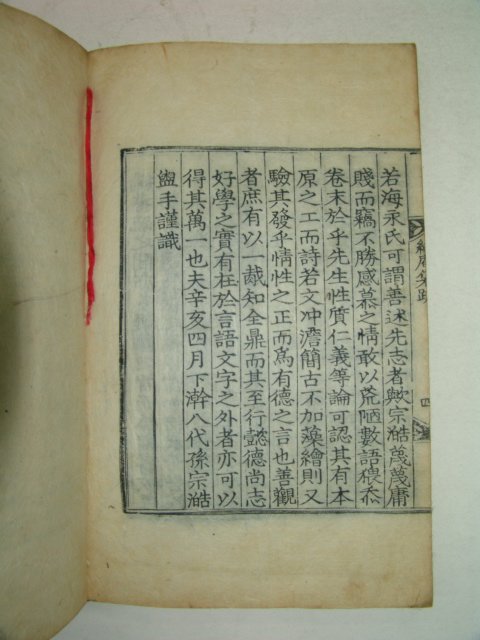 若海永氏可謂善述先志者歟宗澔蔑蔑庸
賤而竊不勝感慕之情敢以荒陋數語猥忝
卷末於乎先生性質仁義等論可認其有本
原之工而詩若文冲澹簡古不加藻繪則又
驗其發乎情性之正而爲有德之言也善觀
者庶有以一胾知全鼎而其至行懿德尚志
好學之實有在於言語文字之外者亦可以
得其萬一也夫辛亥四月下澣八代孫宗澔
盥手謹識
集跋
四